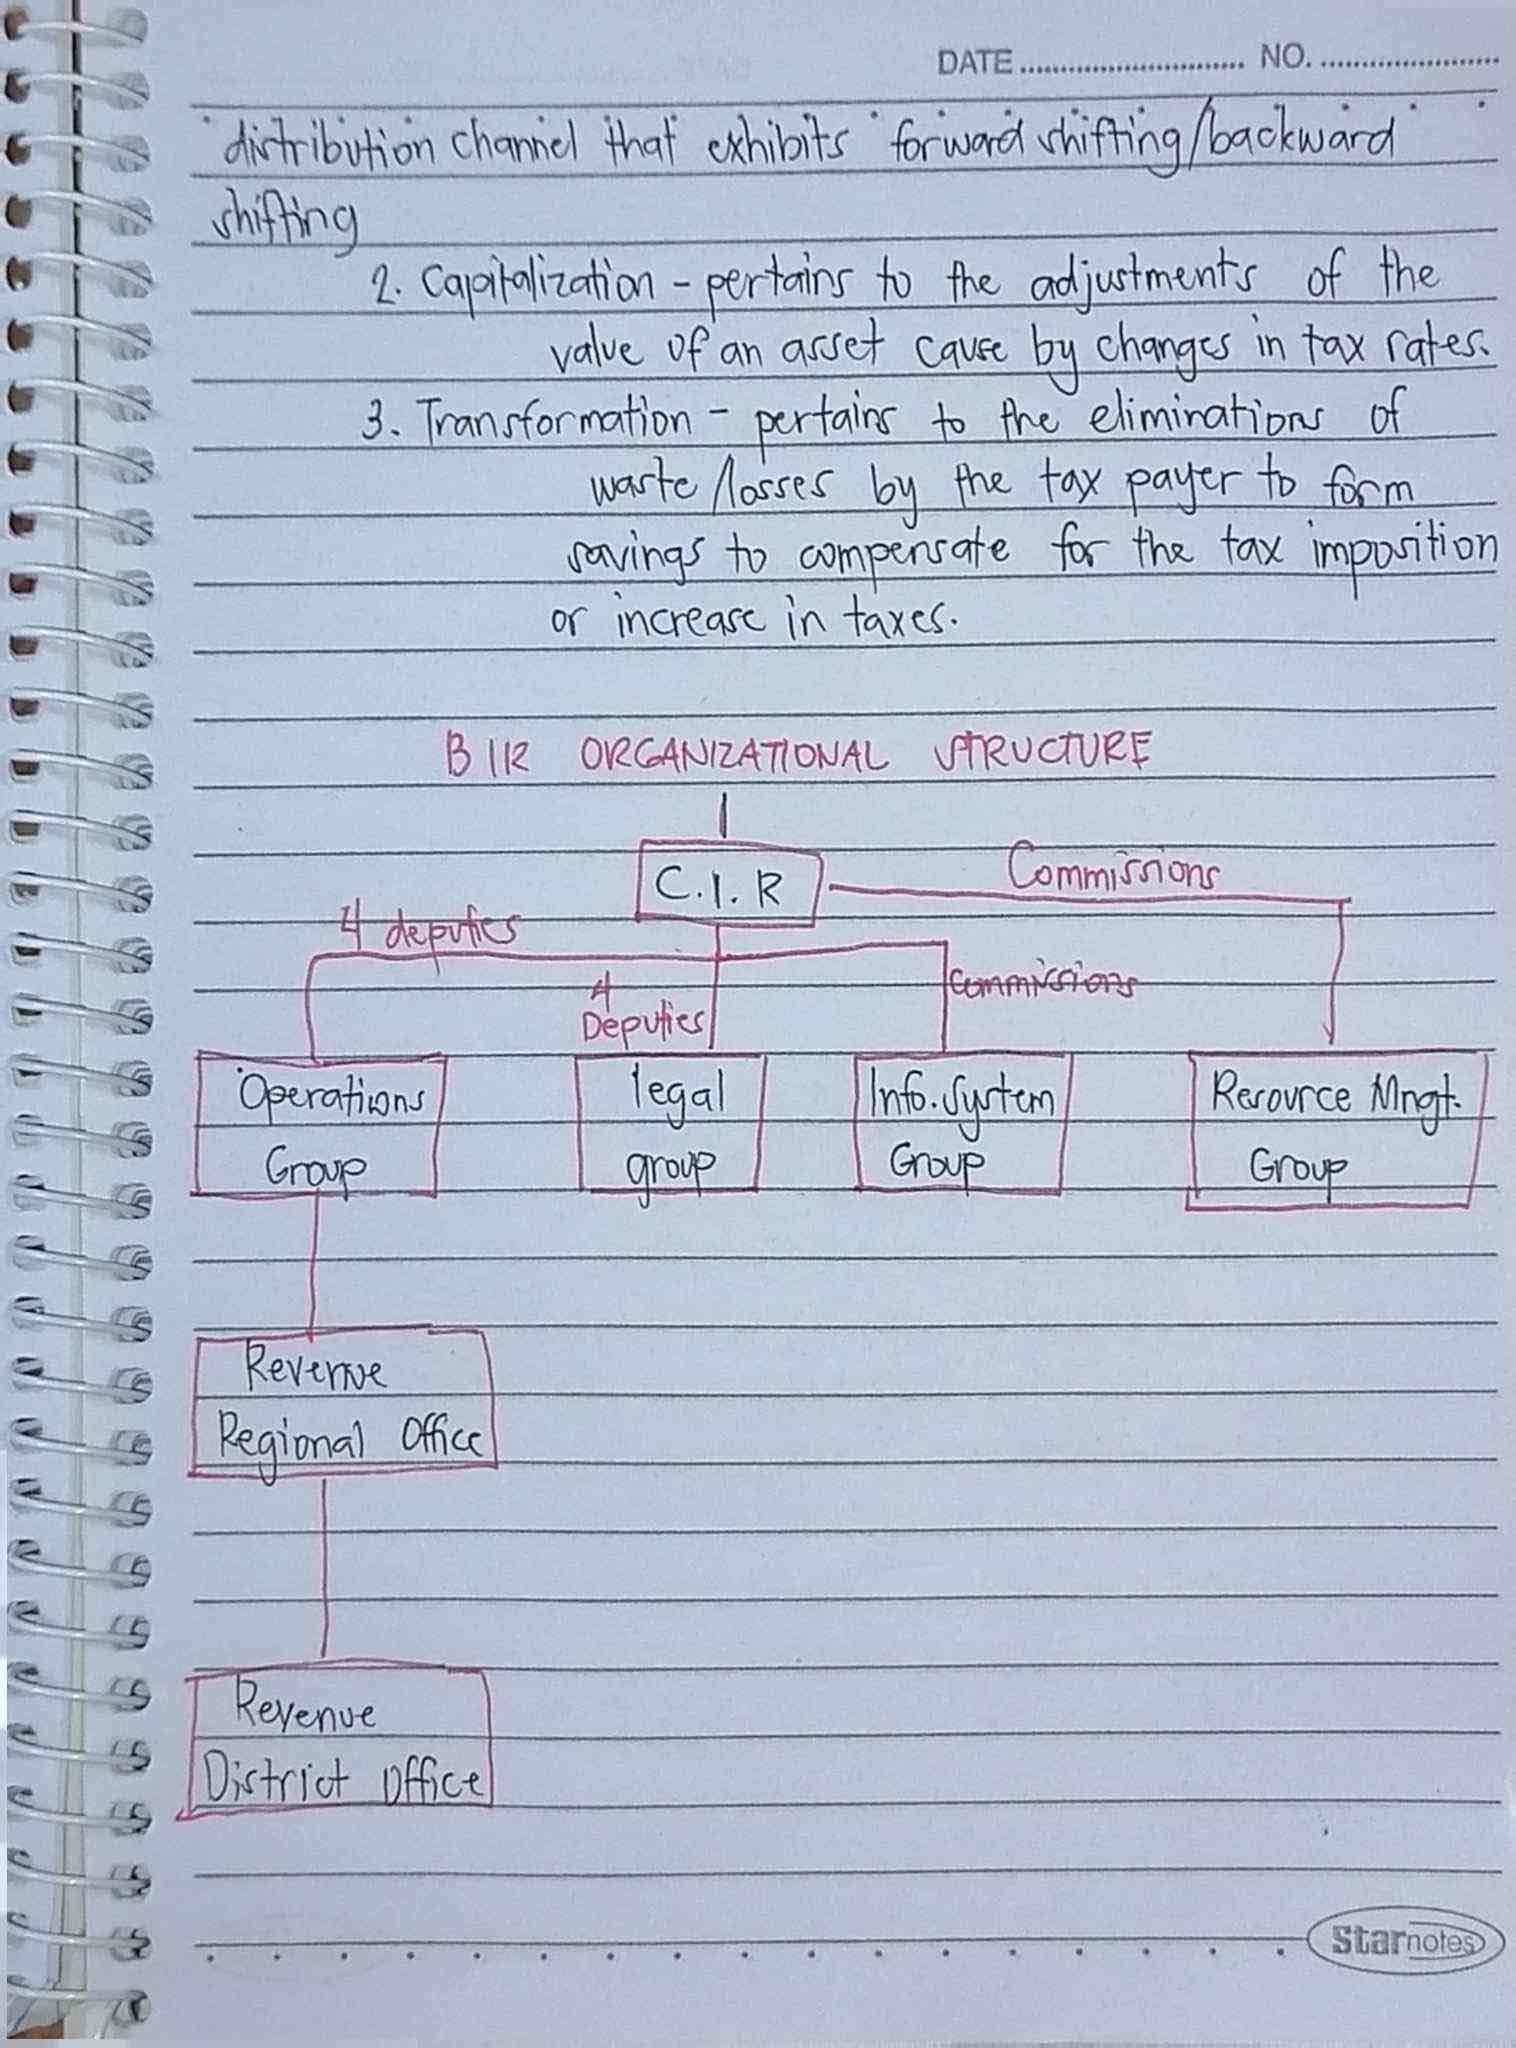 DATE ........................... NO. ......................
distribution channel that exhibits forward shifting/backward
shifting
2. Capitalization - pertains to the adjustments of the
value of an asset cause by changes in tax rates.
3. Transformation - pertains to the eliminations of
waste/losses by the tax payer to form
savings to compensate for the tax imposition
or increase in taxes.
BIR ORGANIZATIONAL STRUCTURE
C.I.R
Commissions
4 deputies
4
Deputies
Commissions
Operations
Group
legal
group
Info.System
Group
Resource Mngt.
Group
Revenue
Regional Office
Revenue
District Office
Starnotes